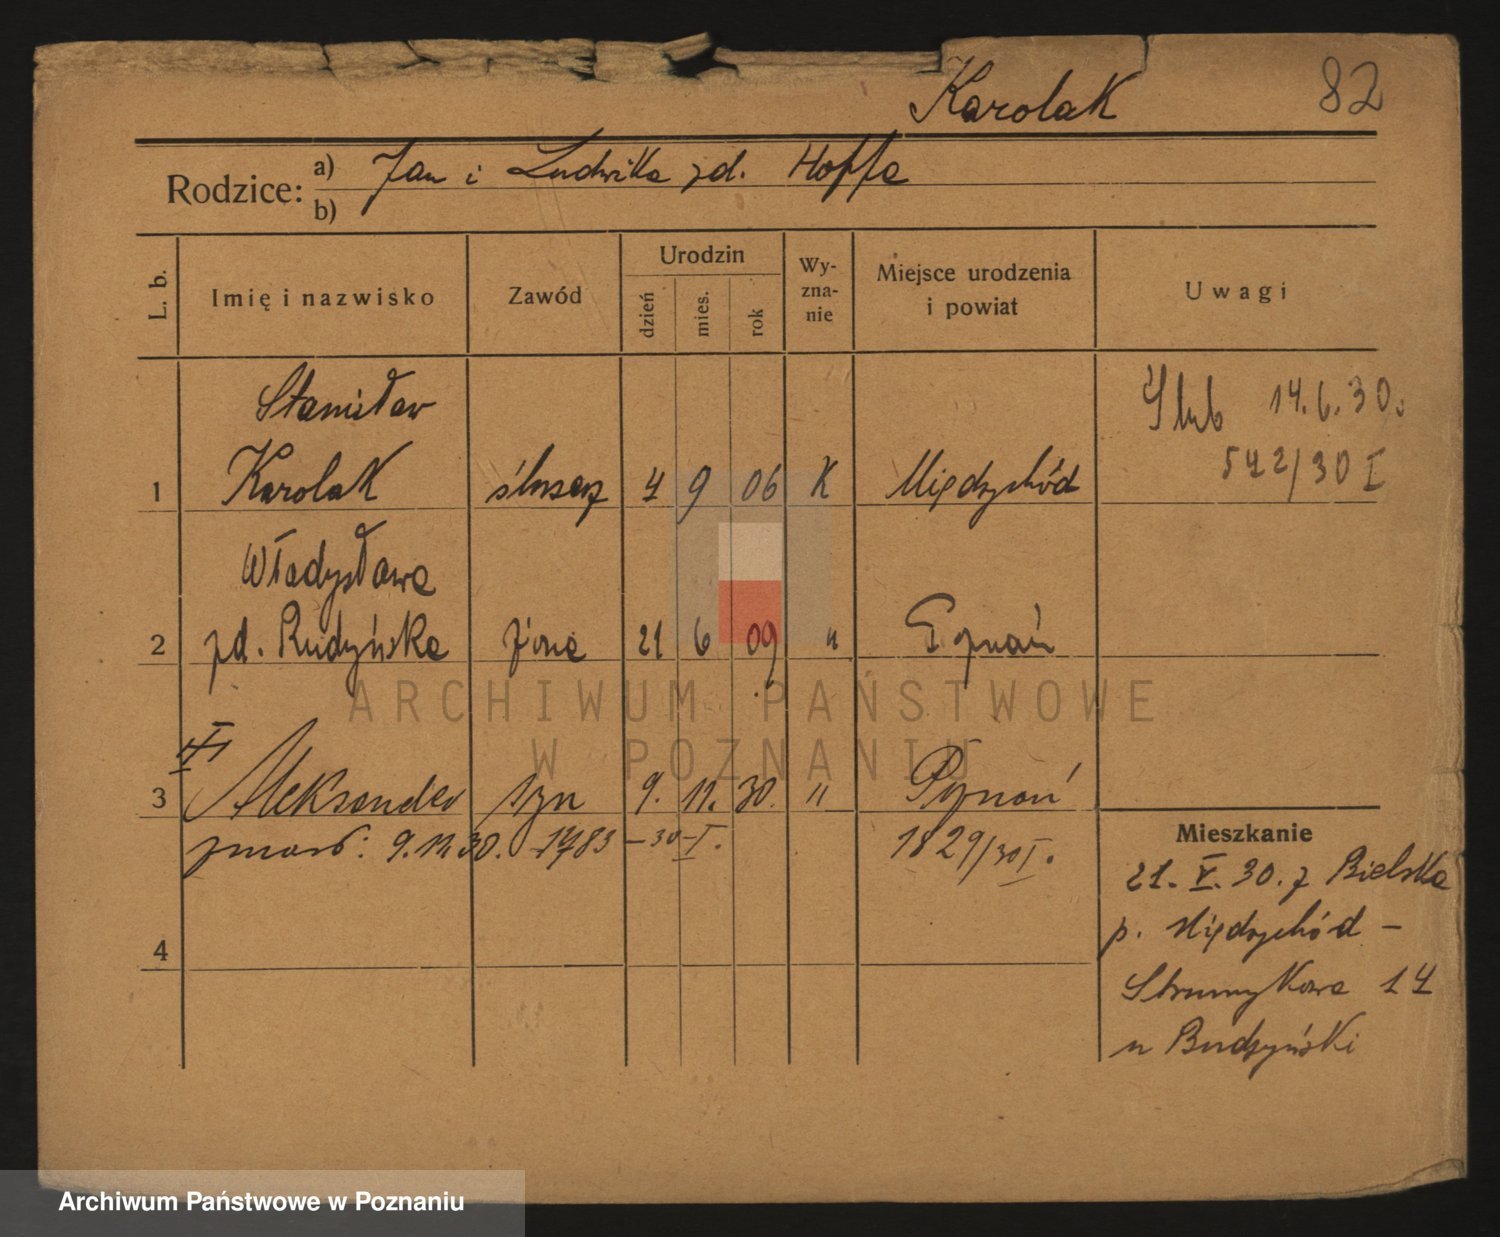 Karolak 82
Rodzice: a) Jan i Ludwika zd. Hoffa
b)
L. b. Imię i nazwisko Zawód Urodzin dzień mies. rok Wy-zna-nie Miejsce urodzenia i powiat Uwagi
Stanisław
1 Karolak ślusarz 4 9 06 K Międzychód
Ślub 14.6.30.
542/30 I
Władysława
2 zd. Rudzyńska żona 21 6 09 " Poznań
ARCHIWUM PAŃSTWOWE
W POZNANIU
3 Aleksander syn 9. 11. 30. " Poznań
zmarł: 9.11.30. 1783 -30-I. 1829/30 I.
4
Mieszkanie
21. V. 30. z Bielska
p. Międzychód -
Strumykowa 14
u Budzyński
Archiwum Państwowe w Poznaniu